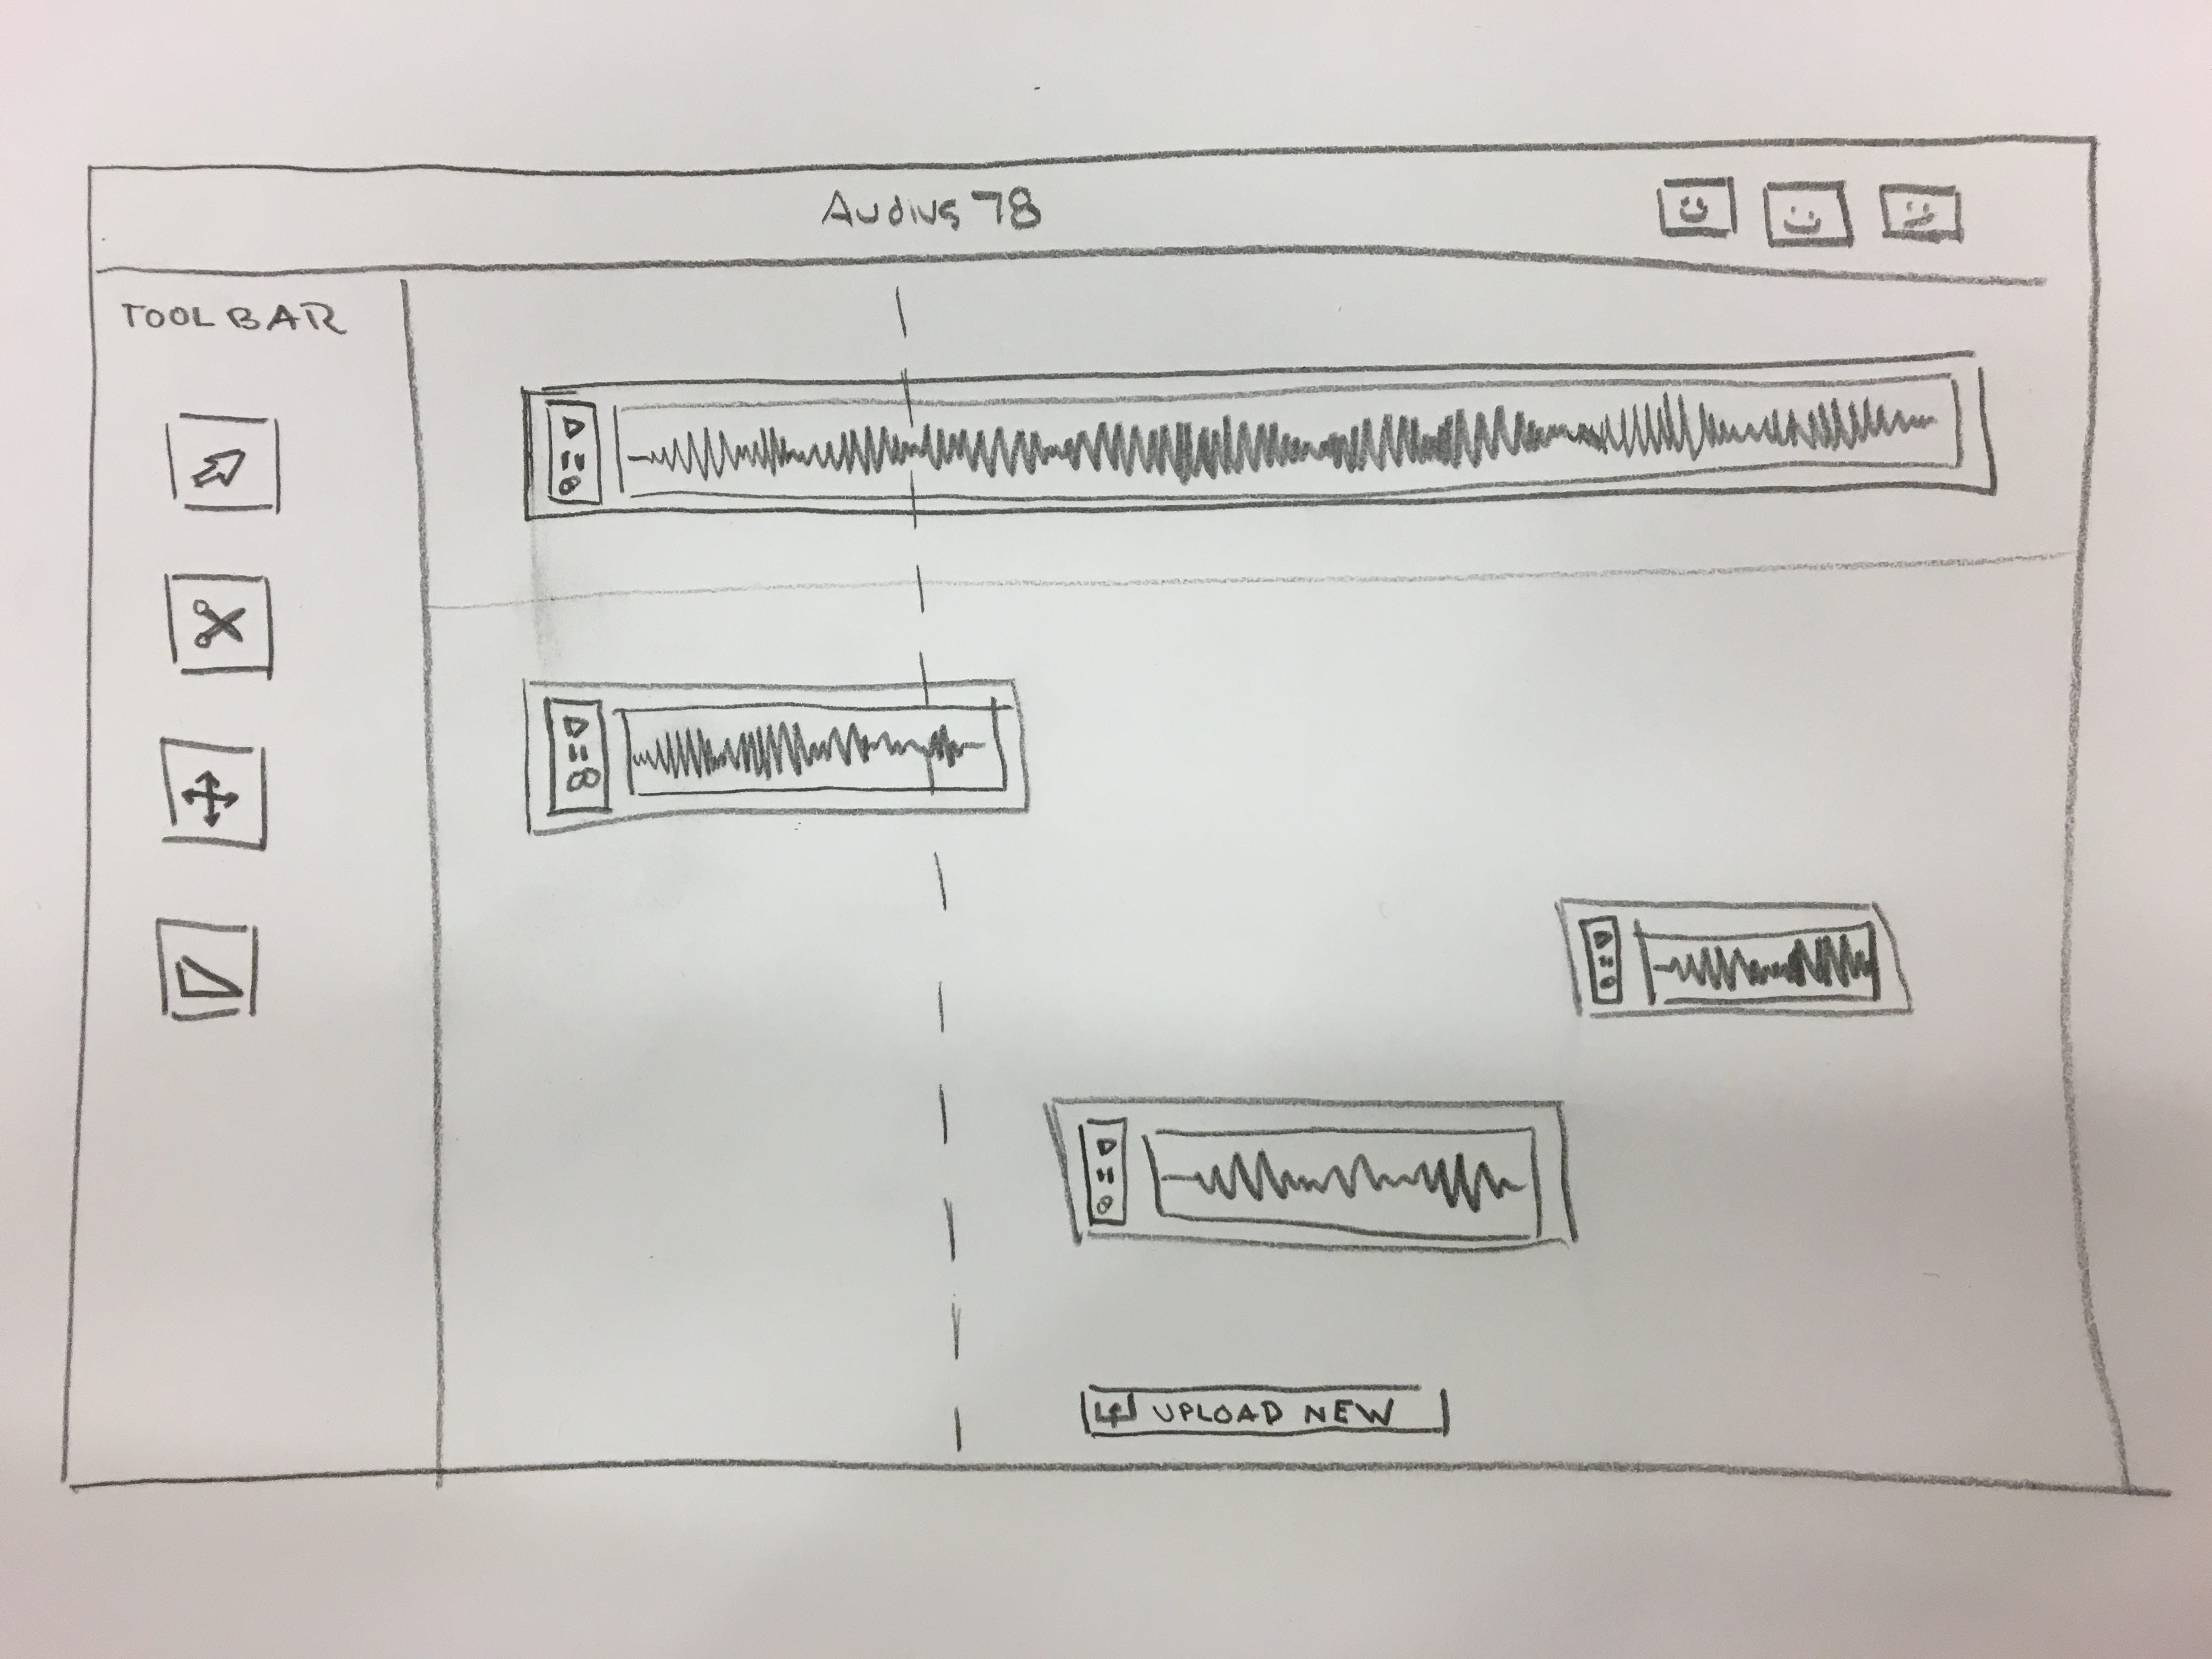 Audius 78
TOOL BAR
UPLOAD NEW